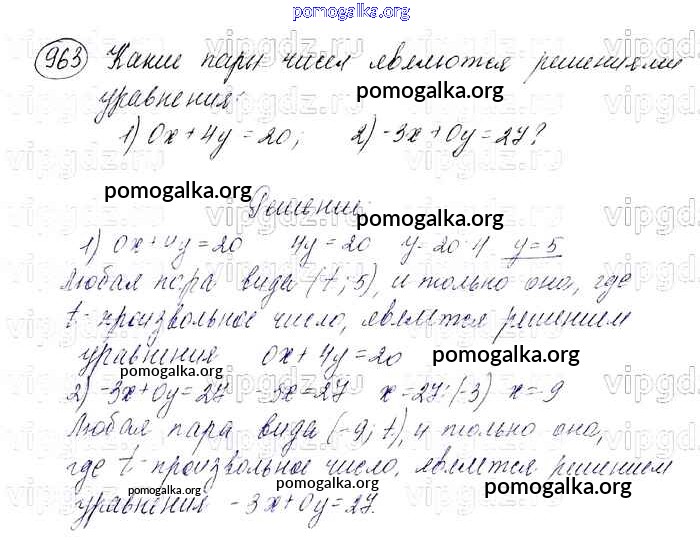 pomogalka.org
963 Какие пары чисел являются решениями
уравнения:
pomogalka.org
1) 0x+4y=20; 2) -3x+0y=27?
pomogalka.org
Решение:
pomogalka.org
1) 0x+4y=20 4y=20 y=20:4 y=5
Любая пара вида (t; 5), и только она, где
t- произвольное число, является решением
уравнения 0x+4y=20
pomogalka.org
2) -3x+0y=27 -3x=27 x=27:(-3) x=-9
Любая пара вида (-9; t), и только она,
где t- произвольное число, является решением
pomogalka.org pomogalka.org
уравнения -3x+0y=27.